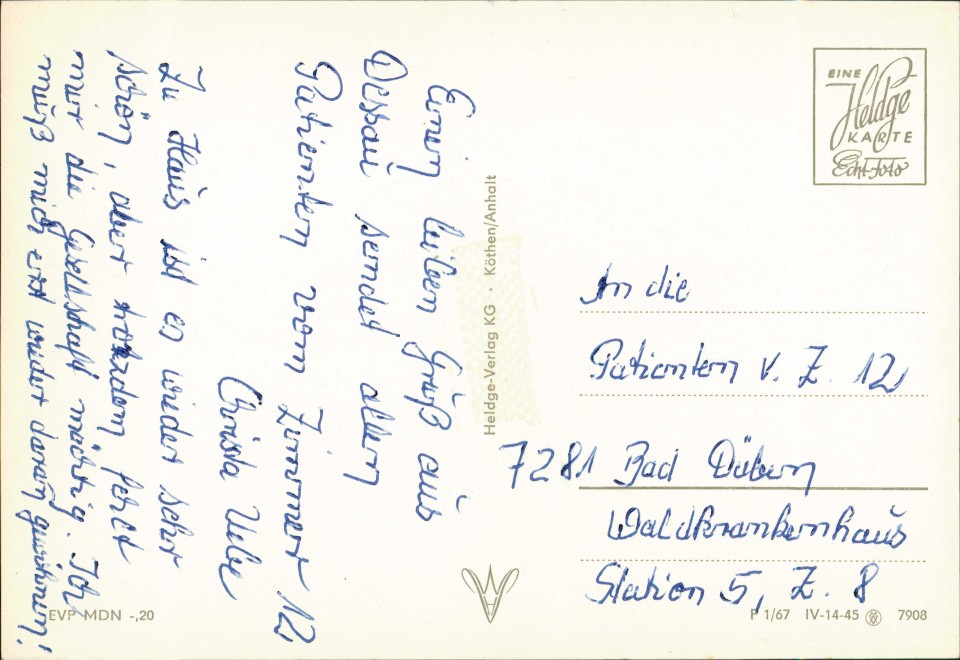 Einen lieben Gruß aus
Dessau sendet allen
Patienten vom Zimmer 12
Christa Uebe
Zu Haus ist es wieder sehr
schön, aber trotzdem fehlt
mir die Gesellschaft mächtig. Ich
muß mich erst wieder daran gewöhnen!
Heldge-Verlag KG · Köthen/Anhalt
EINE
Heldge
KARTE
Echt-Foto
An die
Patienten v. Z. 12
7281 Bad Düben
Waldkrankenhaus
Station 5, Z. 8
EVP MDN -,20
P 1/67 IV-14-45 7908